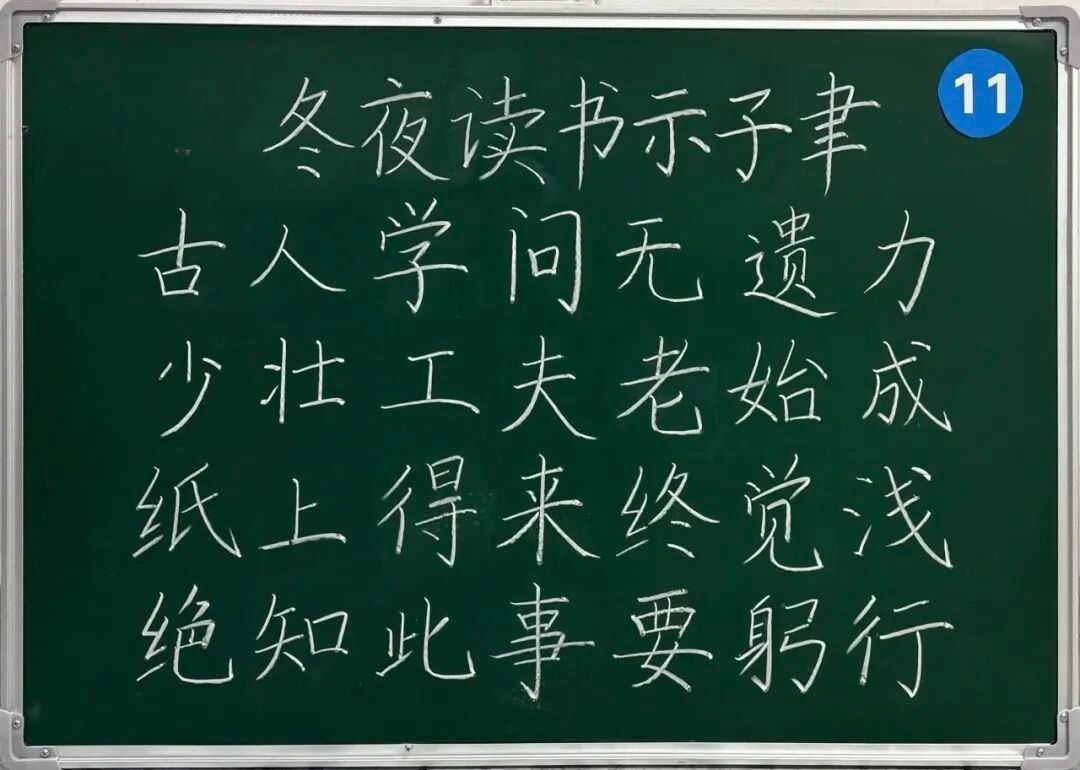 11
冬夜读书示子聿
古人学问无遗力
少壮工夫老始成
纸上得来终觉浅
绝知此事要躬行